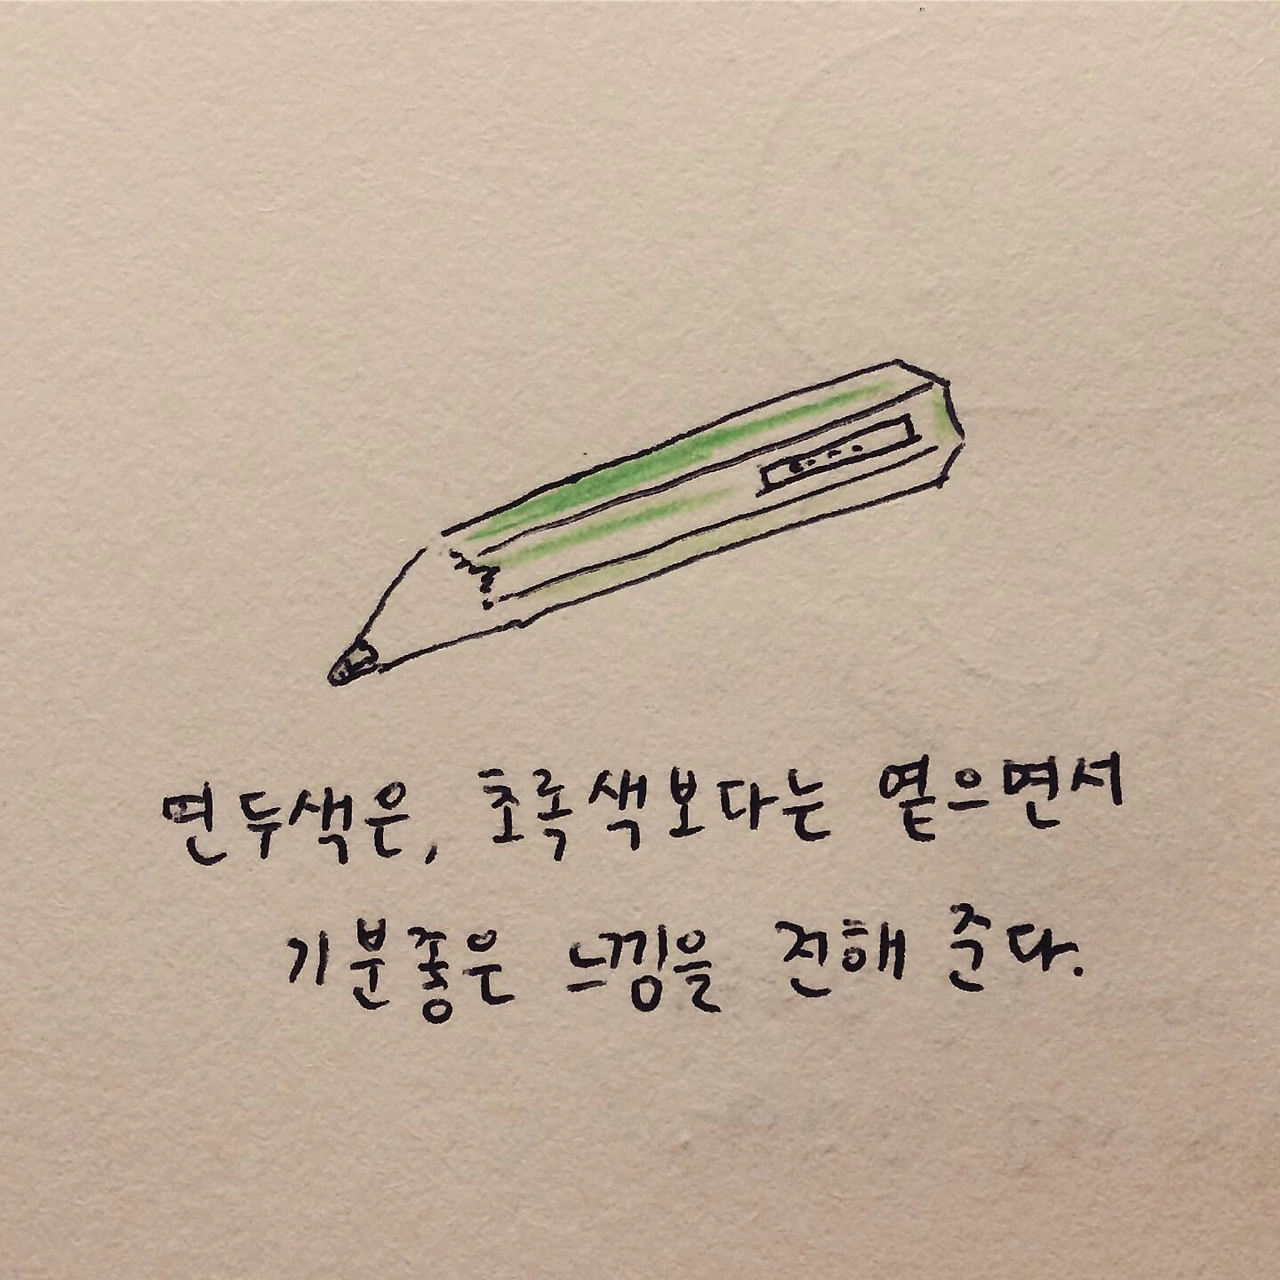 연두색은, 초록색보다는 옅으면서
기분좋은 느낌을 전해 준다.